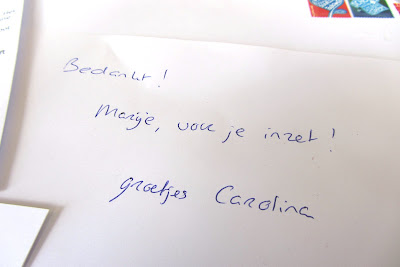 Bedankt!
Marije, voor je inzet!
groetjes Carolina